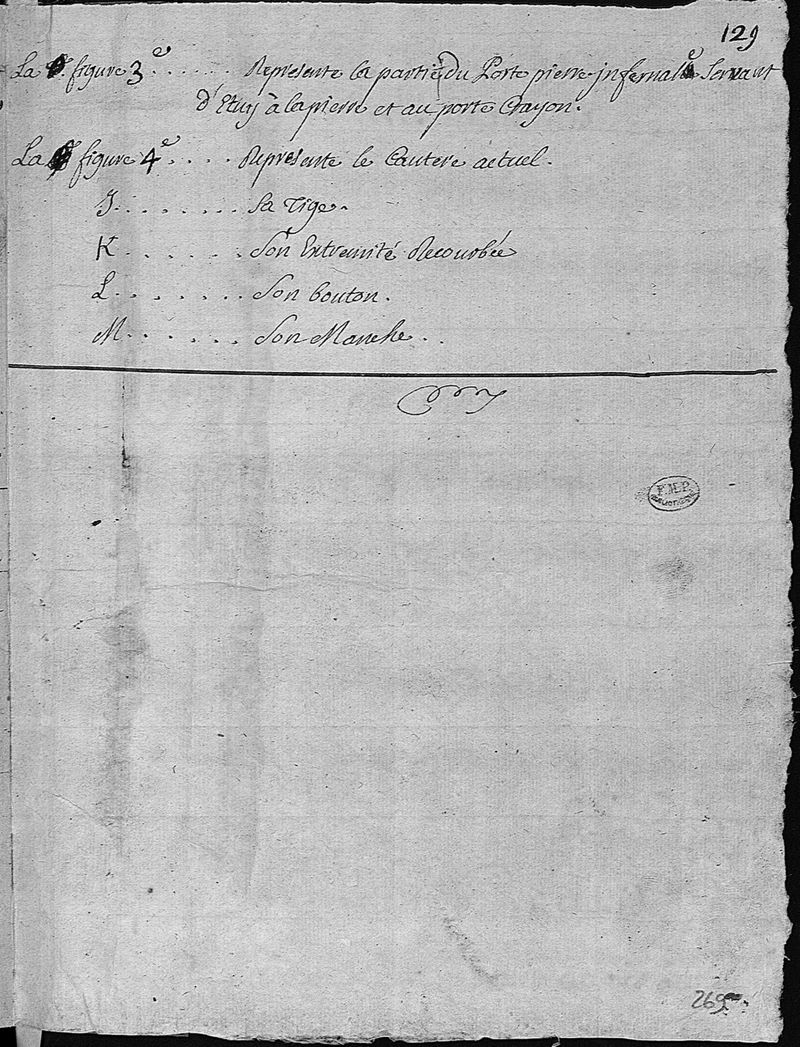 129
La figure 3e . . . . . . Represente la partie du Porte pierre jnfernale Servant
d'Etuy à la pierre et au porte Crayon.
La figure 4e . . . . . Represente le Cautere actuel.
J. . . . . . . . Sa Tige.
K . . . . . . . Son Extremité Recourbée
L . . . . . . . . Son bouton.
M . . . . . . . Son Manche . .
F.M.P.
269